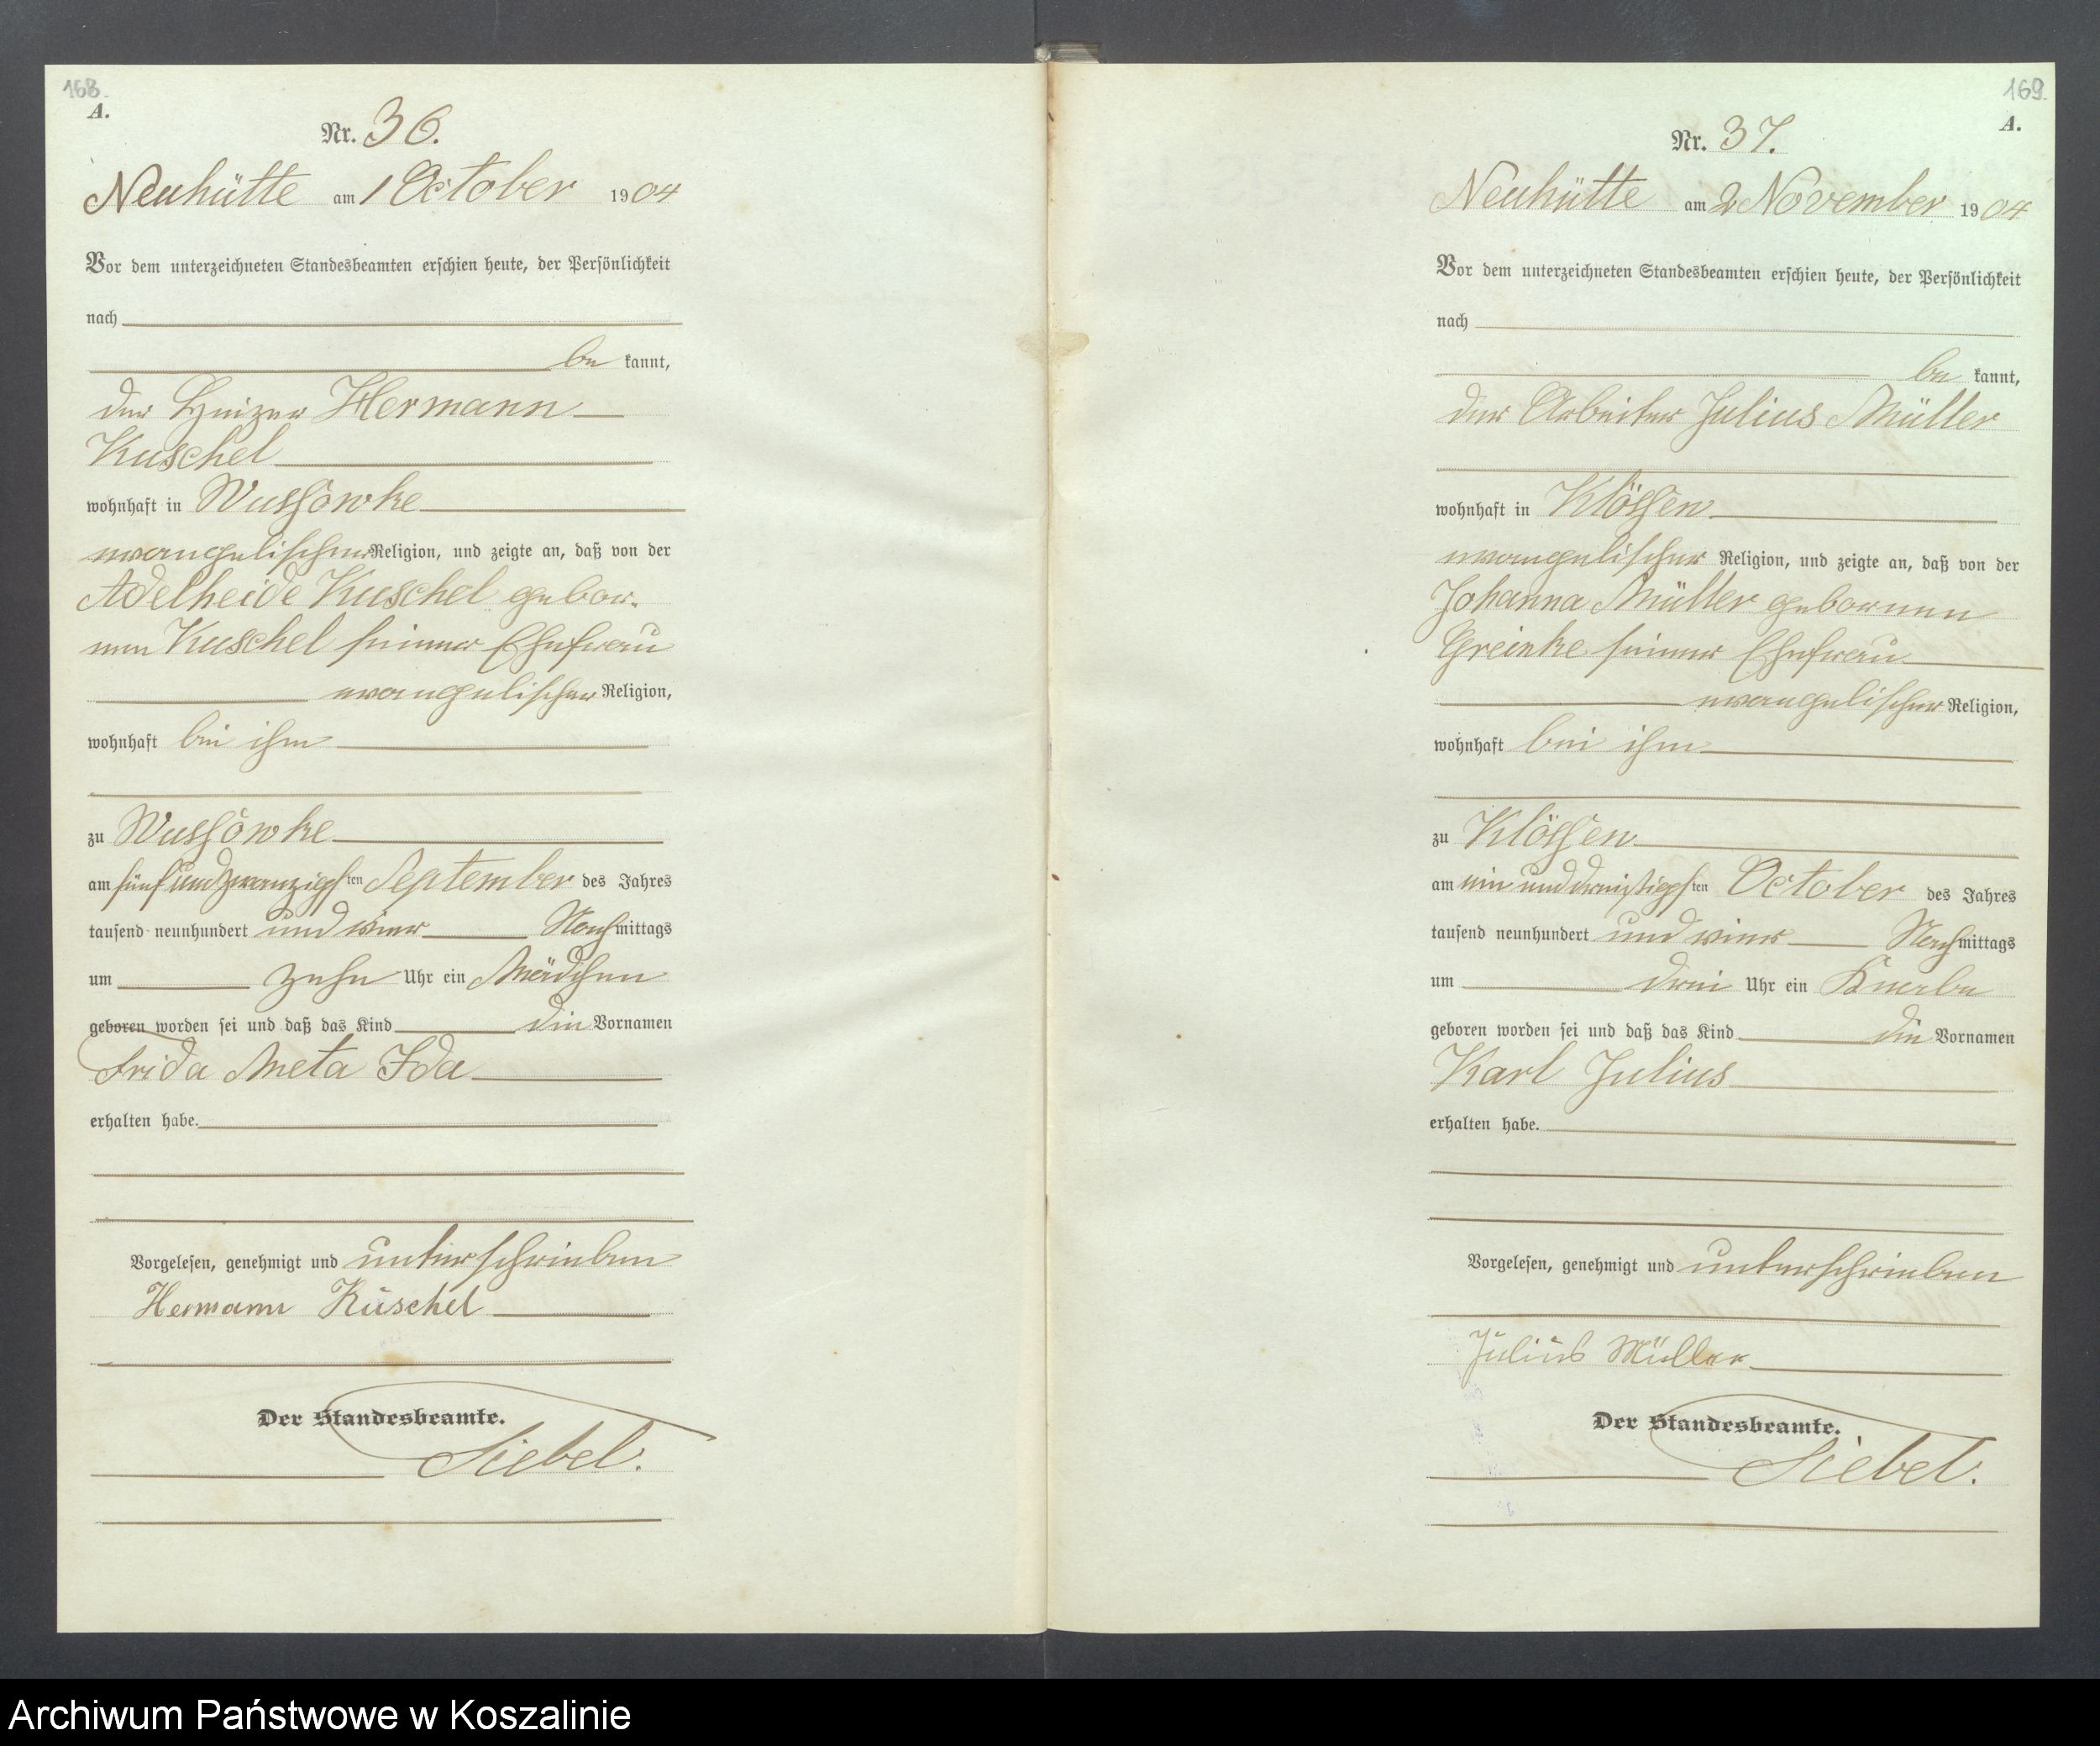 168.
A.
Nr. 36.
Neuhütte am 1 October 1904
Vor dem unterzeichneten Standesbeamten erschien heute, der Persönlichkeit
nach
be kannt,
der Heizer Hermann
Kuschel
wohnhaft in Wussowke
evangelischer Religion, und zeigte an, daß von der
Adelheide Kuschel gebor-
nen Kuschel seiner Ehefrau
evangelischer Religion,
wohnhaft bei ihm
zu Wussowke
am fünf und zwanzigsten September des Jahres
tausend neunhundert und vier Nachmittags
um zehn Uhr ein Mädchen
geboren worden sei und daß das Kind die Vornamen
Frida Meta Ida
erhalten habe.
Vorgelesen, genehmigt und unterschrieben
Hermann Kuschel
Der Standesbeamte.
Siebel.
169.
A.
Nr. 37.
Neuhütte am 2 November 1904
Vor dem unterzeichneten Standesbeamten erschien heute, der Persönlichkeit
nach
be kannt,
der Arbeiter Julius Müller
wohnhaft in Klössen
evangelischer Religion, und zeigte an, daß von der
Johanna Müller gebornen
Greinke seiner Ehefrau
evangelischer Religion,
wohnhaft bei ihm
zu Klössen
am ein und dreißigsten October des Jahres
tausend neunhundert und vier Nachmittags
um drei Uhr ein Knabe
geboren worden sei und daß das Kind die Vornamen
Karl Julius
erhalten habe.
Vorgelesen, genehmigt und unterschrieben
Julius Müller
Der Standesbeamte.
Siebel.
Archiwum Państwowe w Koszalinie